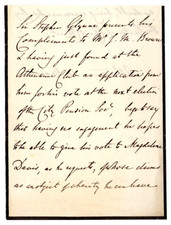 Sir Stephen Glynne presents his
Compliments to Mr J. M. Brown
& having just found at the
Athenaeum Club an application from
him for his vote at the next election
of the City Pension Socy, begs to say
that having no engagement he hopes
to be able to give his vote to Magdalene
Davis, as he requests, whose claims
as an object of charity he